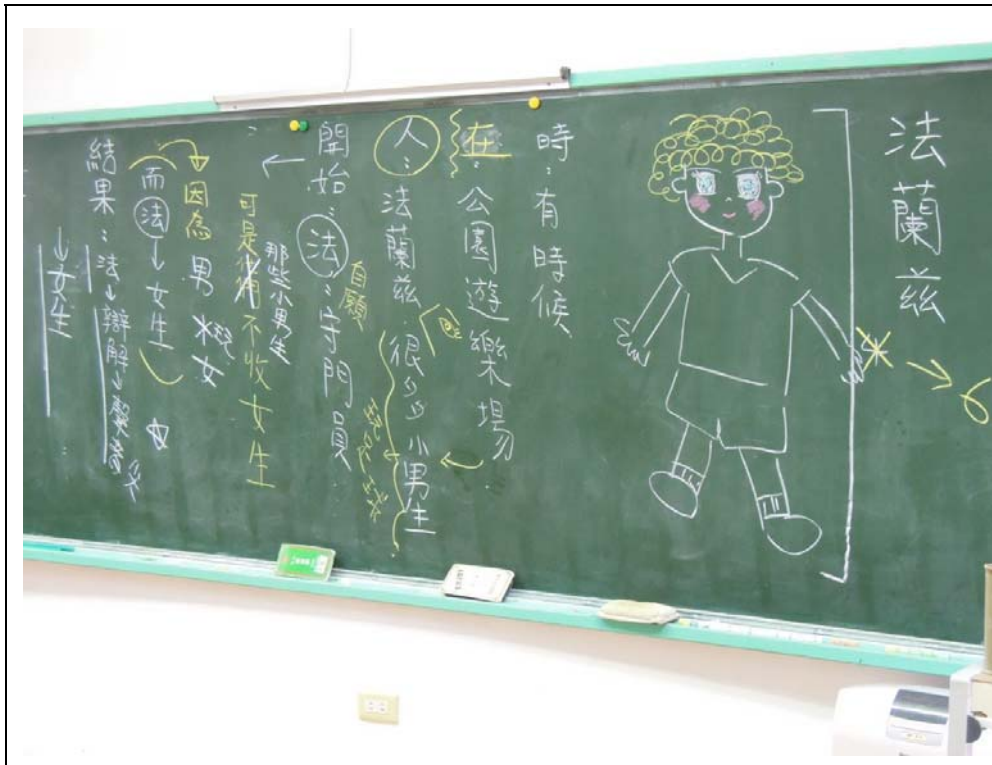 法蘭茲
時：有時候
在：公園遊樂場
人：法蘭茲 很少 小男生
自願
開始：法：守門員
那些小男生
可是 不收女生
因為 男 女
而法→女生
結果：法→辯解→
→女生